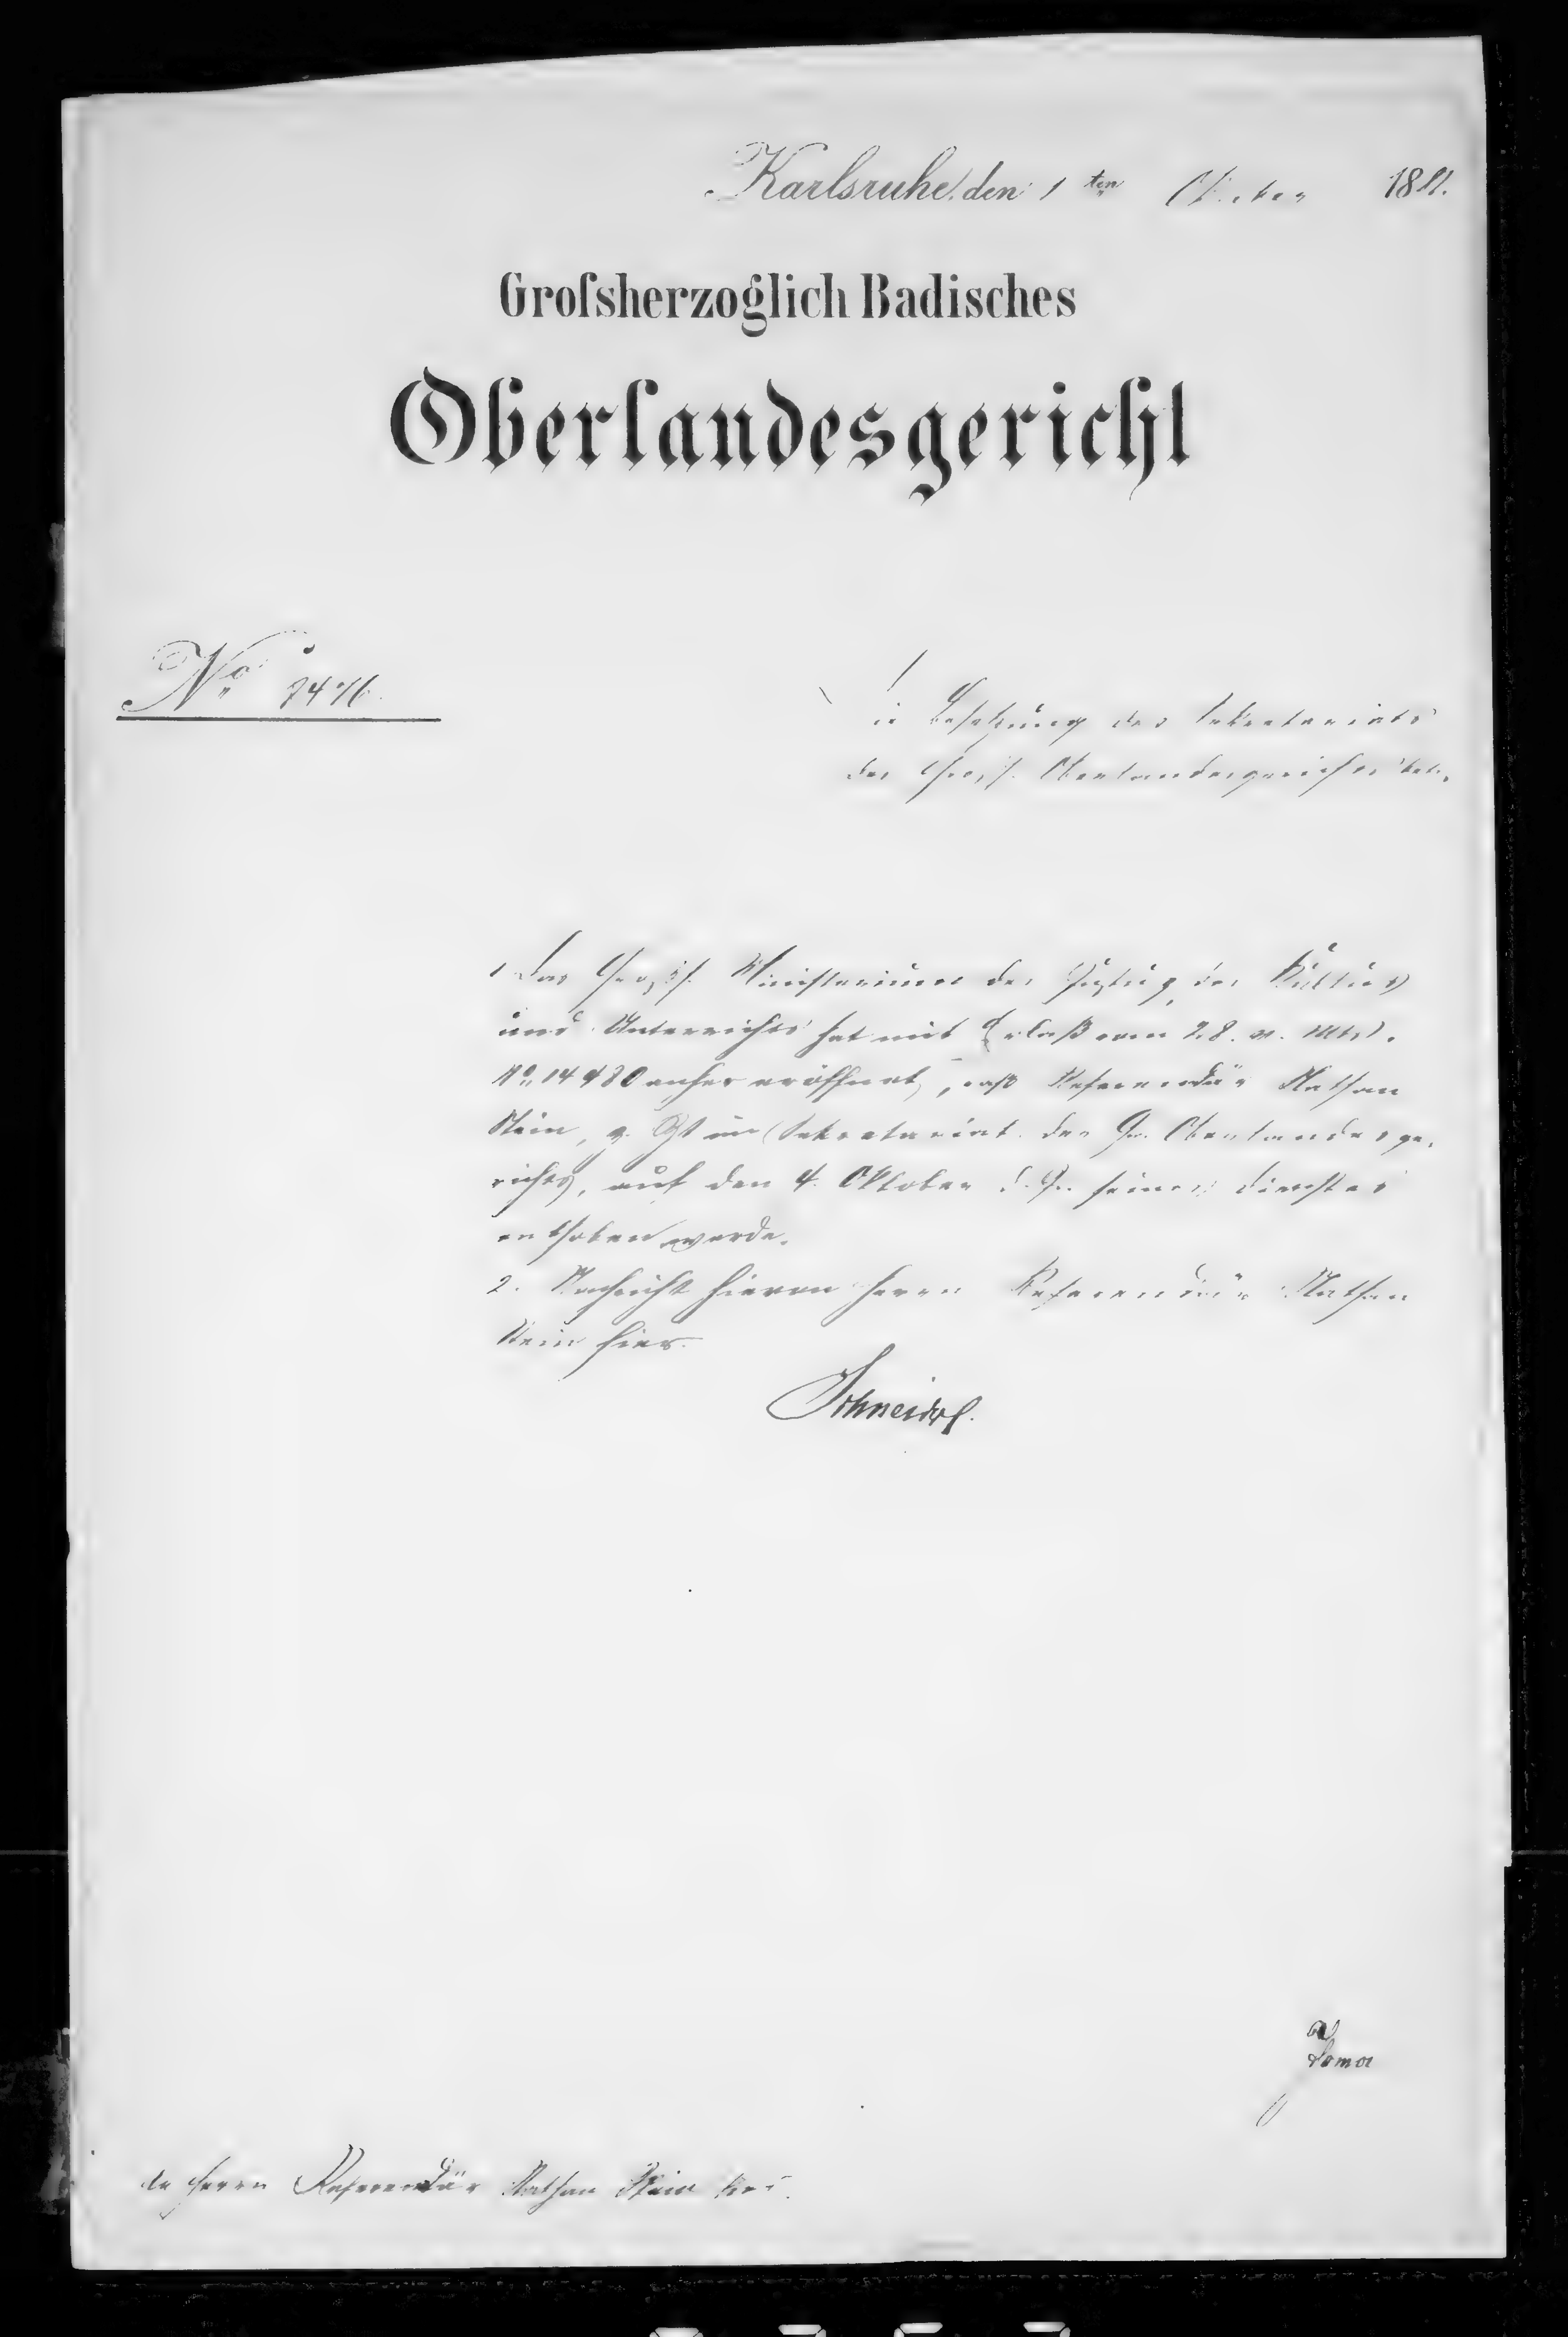 Karlsruhe, den 1 ten Oktober 1881.
Grofsherzoglich Badisches
Oberlandesgericht
No 7476.
Die Besetzung des Sekretariats
des Großh. Oberlandesgerichts betr.
1. Das Großh. Ministerium der Justiz, des Kultus
und Unterrichts hat mit Erlaß vom 28. v. Mts.
No 14480 anher eröffnet, daß Referendär Nathan
Stein, z. Zt im Sekretariat des Gr. Oberlandesge-
richts, auf den 4. Oktober d. Js. seines Dienstes
enthoben werde.
2. Nachricht hievon Herrn Referendär Nathan
Stein hier.
Schneider.
Herrn Referendär Nathan Stein